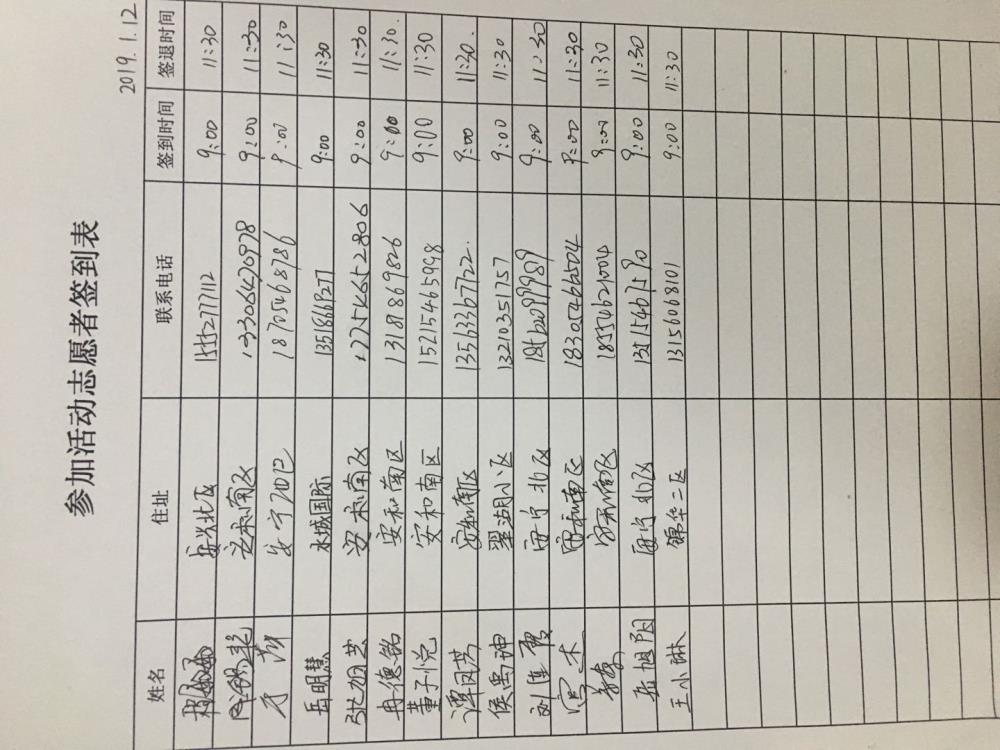 参加活动志愿者签到表
2019.1.12
姓名 住址 联系电话 签到时间 签退时间
安兴北区 15552777112 9:00 11:30
安和南区 13306470978 9:00 11:30
18705468786 9:00 11:30
岳明慧 水城国际 13518649277 9:00 11:30
张旭芸 安和南区 17754652806 9:00 11:30
冉德铭 安和南区 13181869826 9:00 11:30
董子悦 安和南区 15215465998 9:00 11:30
谭凤芳 安和南区 13563367722 9:00 11:30
侯禹坤 翠湖小区 13210351757 9:00 11:30
刘连霞 安宁北区 9:00 11:30
安和南区 18305466504 9:00 11:30
安和南区 18554621004 9:00 11:30
岳旭阳 安宁北区 9:00 11:30
王小琳 锦华二区 13156068101 9:00 11:30